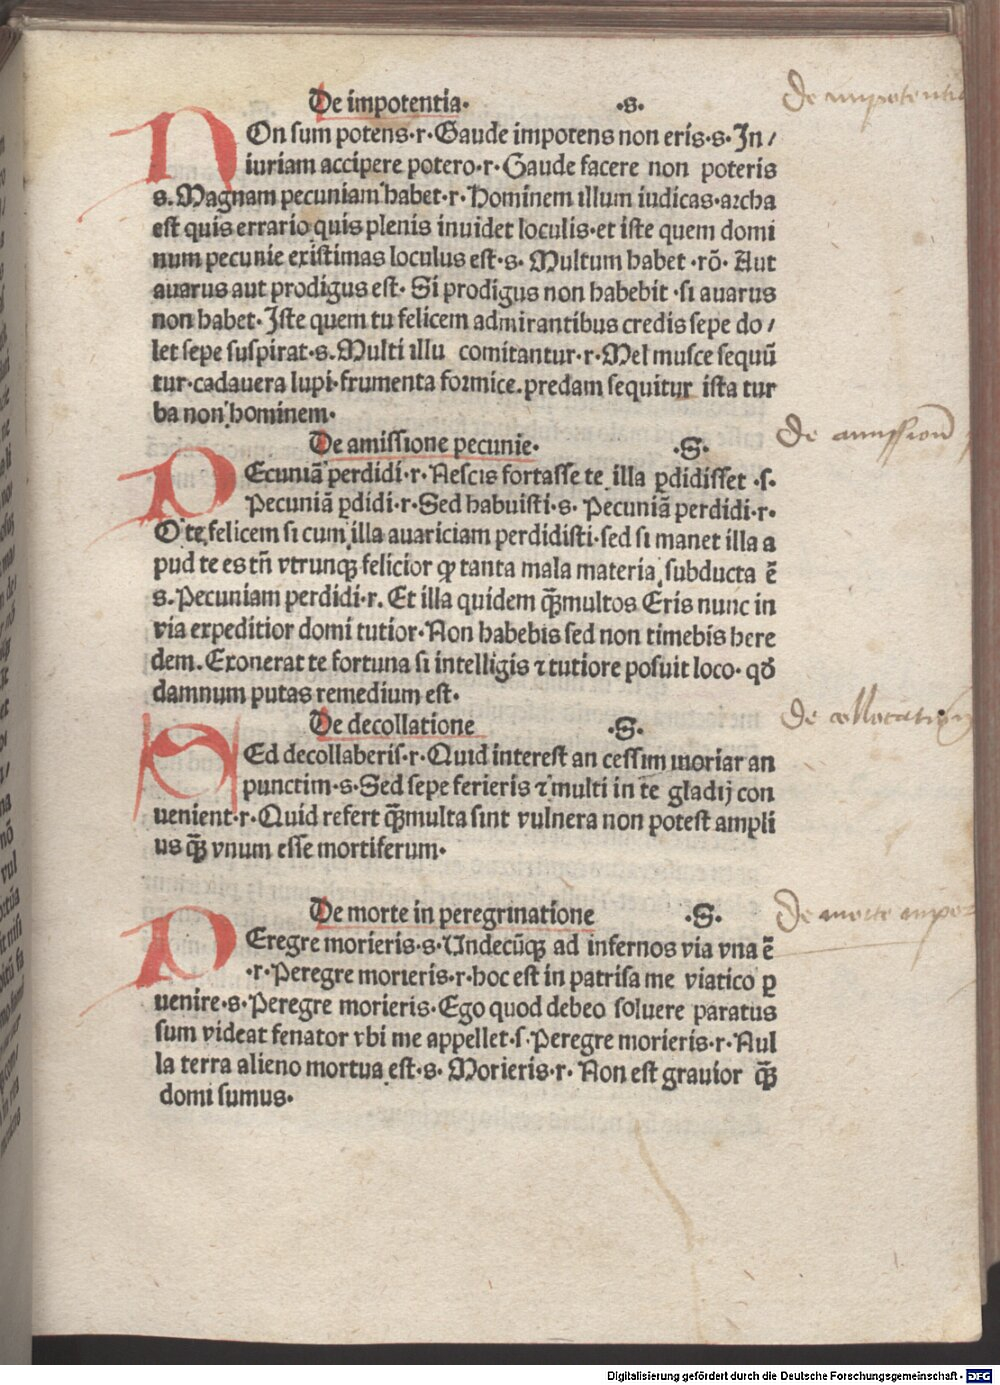 De impotentia· ·s·
NOn sum potens·r·Gaude impotens non eris·s·In/
iuriam accipere potero·r·Gaude facere non poteris
s.Magnam pecuniam habet·r·Hominem illum iudicas·archa
est quis errario quis plenis inuidet loculis·et iste quem domi
num pecunie existimas loculus est·s· Multum habet ·rō· Aut
auarus aut prodigus est· Si prodigus non habebit ·si auarus
non habet· Iste quem tu felicem admirantibus credis sepe do/
let sepe suspirat·s.Multi illu comitantur·r·Mel musce sequū
tur·cadauera lupi·frumenta formice.predam sequitur ista tur
ba non hominem·
De amissione pecunie· ·S·
PEcuniā perdidi·r·Nescis fortasse te illa ꝑdidisset ·s·
Pecuniā ꝑdidi·r·Sed habuisti·s· Pecuniā perdidi·r·
O te felicem si cum illa auariciam perdidisti·sed si manet illa a
pud te es tn̄ vtrunqꝫ felicior ꝙ tanta mala materia subducta ē
s.Pecuniam perdidi·r. Et illa quidem qꝫ̄multos Eris nunc in
via expeditior domi tutior·Non habebis sed non timebis here
dem.Exonerat te fortuna si intelligis ⁊ tutiore posuit loco· qō
damnum putas remedium est·
De decollatione ·S·
SEd decollaberis·r·Quid interest an cessim moriar an
punctim·s·Sed sepe ferieris ⁊ multi in te gladij con
uenient·r·Quid refert qꝫ̄multa sint vulnera non potest ampli
us qꝫ̄ vnum esse mortiferum·
De morte in peregrinatione ·S·
PEregre morieris·s·Undecūqꝫ ad infernos via vna ē
·r·Peregre morieris·r·hoc est in patrisa me viatico ꝑ
uenire·s·Peregre morieris·Ego quod debeo soluere paratus
sum videat fenator vbi me appellet·s·Peregre morieris·r·Nul
la terra alieno mortua est·s· Morieris·r· Non est grauior qꝫ̄
domi sumus·
De impotentia
De amission
De collocation
De morte in per
Digitalisierung gefördert durch die Deutsche Forschungsgemeinschaft - DFG